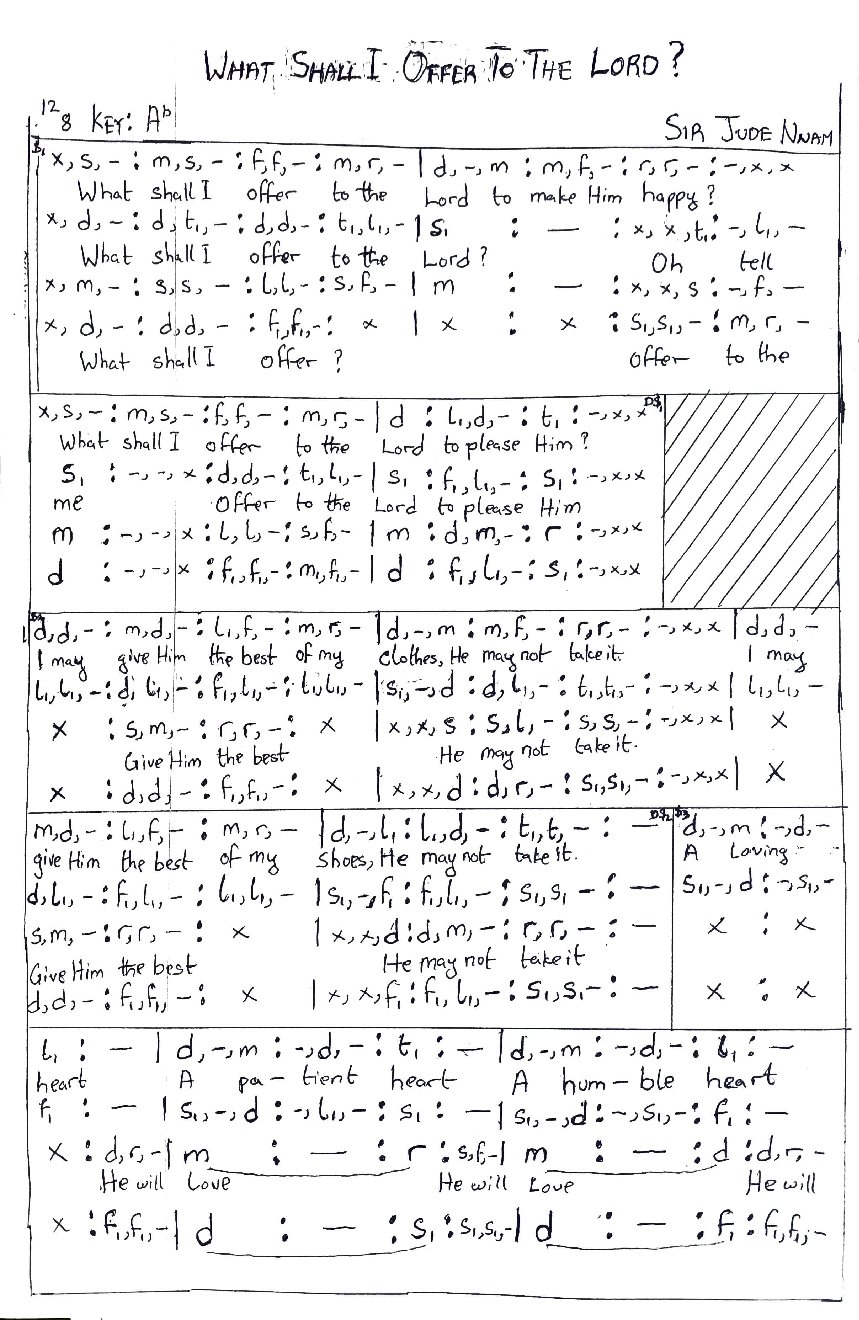 WHAT SHALL I OFFER TO THE LORD?
12 8 KEY: Ab
SIR JUDE NNAM
x, s, - : m, s, - : f, f, - : m, r, - | d, -, m : m, f, - : r, r, - : -, x, x
What shall I offer to the Lord to make Him happy?
x, d, - : d, t₁, - : d, d, - : t₁, l₁, - | s₁ : — : x, x, t₁ : -, l₁, -
What shall I offer to the Lord? Oh tell
x, m, - : s, s, - : l, l, - : s, f, - | m : — : x, x, s : -, f, -
x, d, - : d, d, - : f₁, f₁, - : x | x : x : s₁, s₁, - : m, r, -
What shall I offer? offer to the
x, s, - : m, s, - : f, f, - : m, r, - | d : l₁, d, - : t₁ : -, x, x
What shall I offer to the Lord to please Him?
s₁ : -, -, x : d, d, - : t₁, l₁, - | s₁ : f₁, l₁, - : s₁ : -, x, x
me Offer to the Lord to please Him
m : -, -, x : l, l, - : s, f, - | m : d, m, - : r : -, x, x
d : -, -, x : f₁, f₁, - : m₁, f₁, - | d : f₁, l₁, - : s₁ : -, x, x
d, d, - : m, d, - : l₁, f, - : m, r, - | d, -, m : m, f, - : r, r, - : -, x, x | d, d, -
I may give Him the best of my clothes, He may not take it. I may
l₁, l₁, - : d, l₁, - : f₁, l₁, - : l₁, l₁, - | s₁, -, d : d, l₁, - : t₁, t₁, - : -, x, x | l₁, l₁, -
x : s, m, - : r, r, - : x | x, x, s : s, l, - : s, s, - : -, x, x | x
Give Him the best He may not take it.
x : d, d, - : f₁, f₁, - : x | x, x, d : d, r, - : s₁, s₁, - : -, x, x | x
m, d, - : l₁, f, - : m, r, - | d, -, l₁ : l₁, d, - : t₁, t₁, - : — d, -, m : -, d, -
give Him the best of my shoes, He may not take it. A Loving -
d, l₁, - : f₁, l₁, - : l₁, l₁, - | s₁, -, f₁ : f₁, l₁, - : s₁, s₁ - : — s₁, -, d : -, s₁, -
s, m, - : r, r, - : x | x, x, d : d, m, - : r, r, - : — x : x
Give Him the best He may not take it
d, d, - : f₁, f₁, - : x | x, x, f₁ : f₁, l₁, - : s₁, s₁ - : — x : x
l₁ : — | d, -, m : -, d, - : t₁ : — | d, -, m : -, d, - : l₁ : —
heart A pa - tient heart A hum - ble heart
f₁ : — | s₁, -, d : -, l₁, - : s₁ : — | s₁, -, d : -, s₁, - : f₁ : —
x : d, r, - | m : — : r : s, f, - | m : — : d : d, r, -
He will Love He will Love He will
x : f₁, f₁, - | d : — : s₁ : s₁, s₁, - | d : — : f₁ : f₁, f₁, -